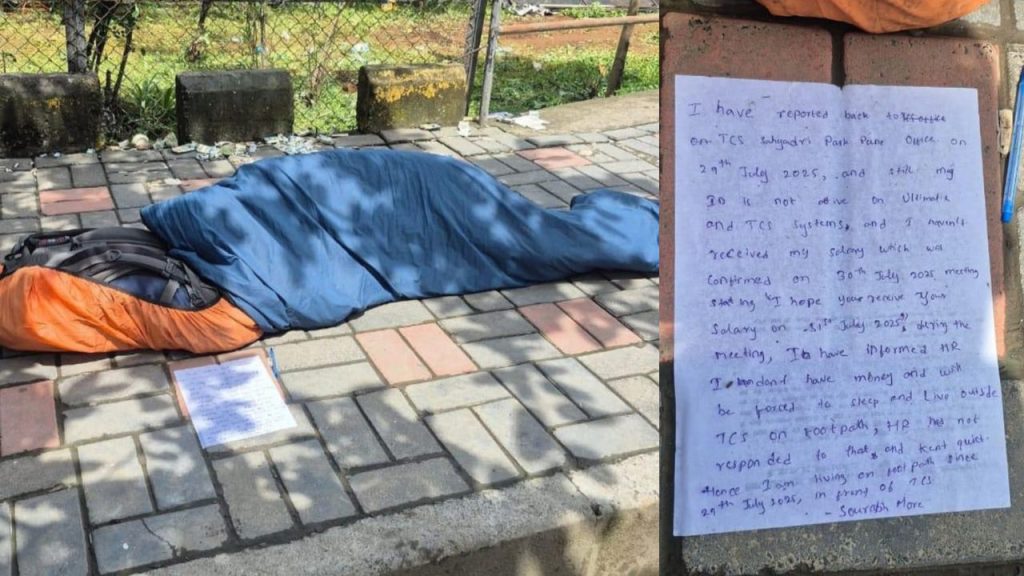 I have reported back to office
on TCS Sahyadri Park Pune Office on
29th July 2025, and still my
ID is not ative on Ultimatix
and TCS systems, and I haven't
received my salary which was
Confirmed on 30th July 2025 meeting,
stating "I hope you receive Your
Salary on 31st July 2025", during the
meeting, I have informed HR
I dondont have money and will
be forced to sleep and Live outside
TCS on Footpath, HR has not
responded to that, and Kept quiet.
Hence I am living on footpath since
29th July 2025, in front of TCS
- Sourabh More